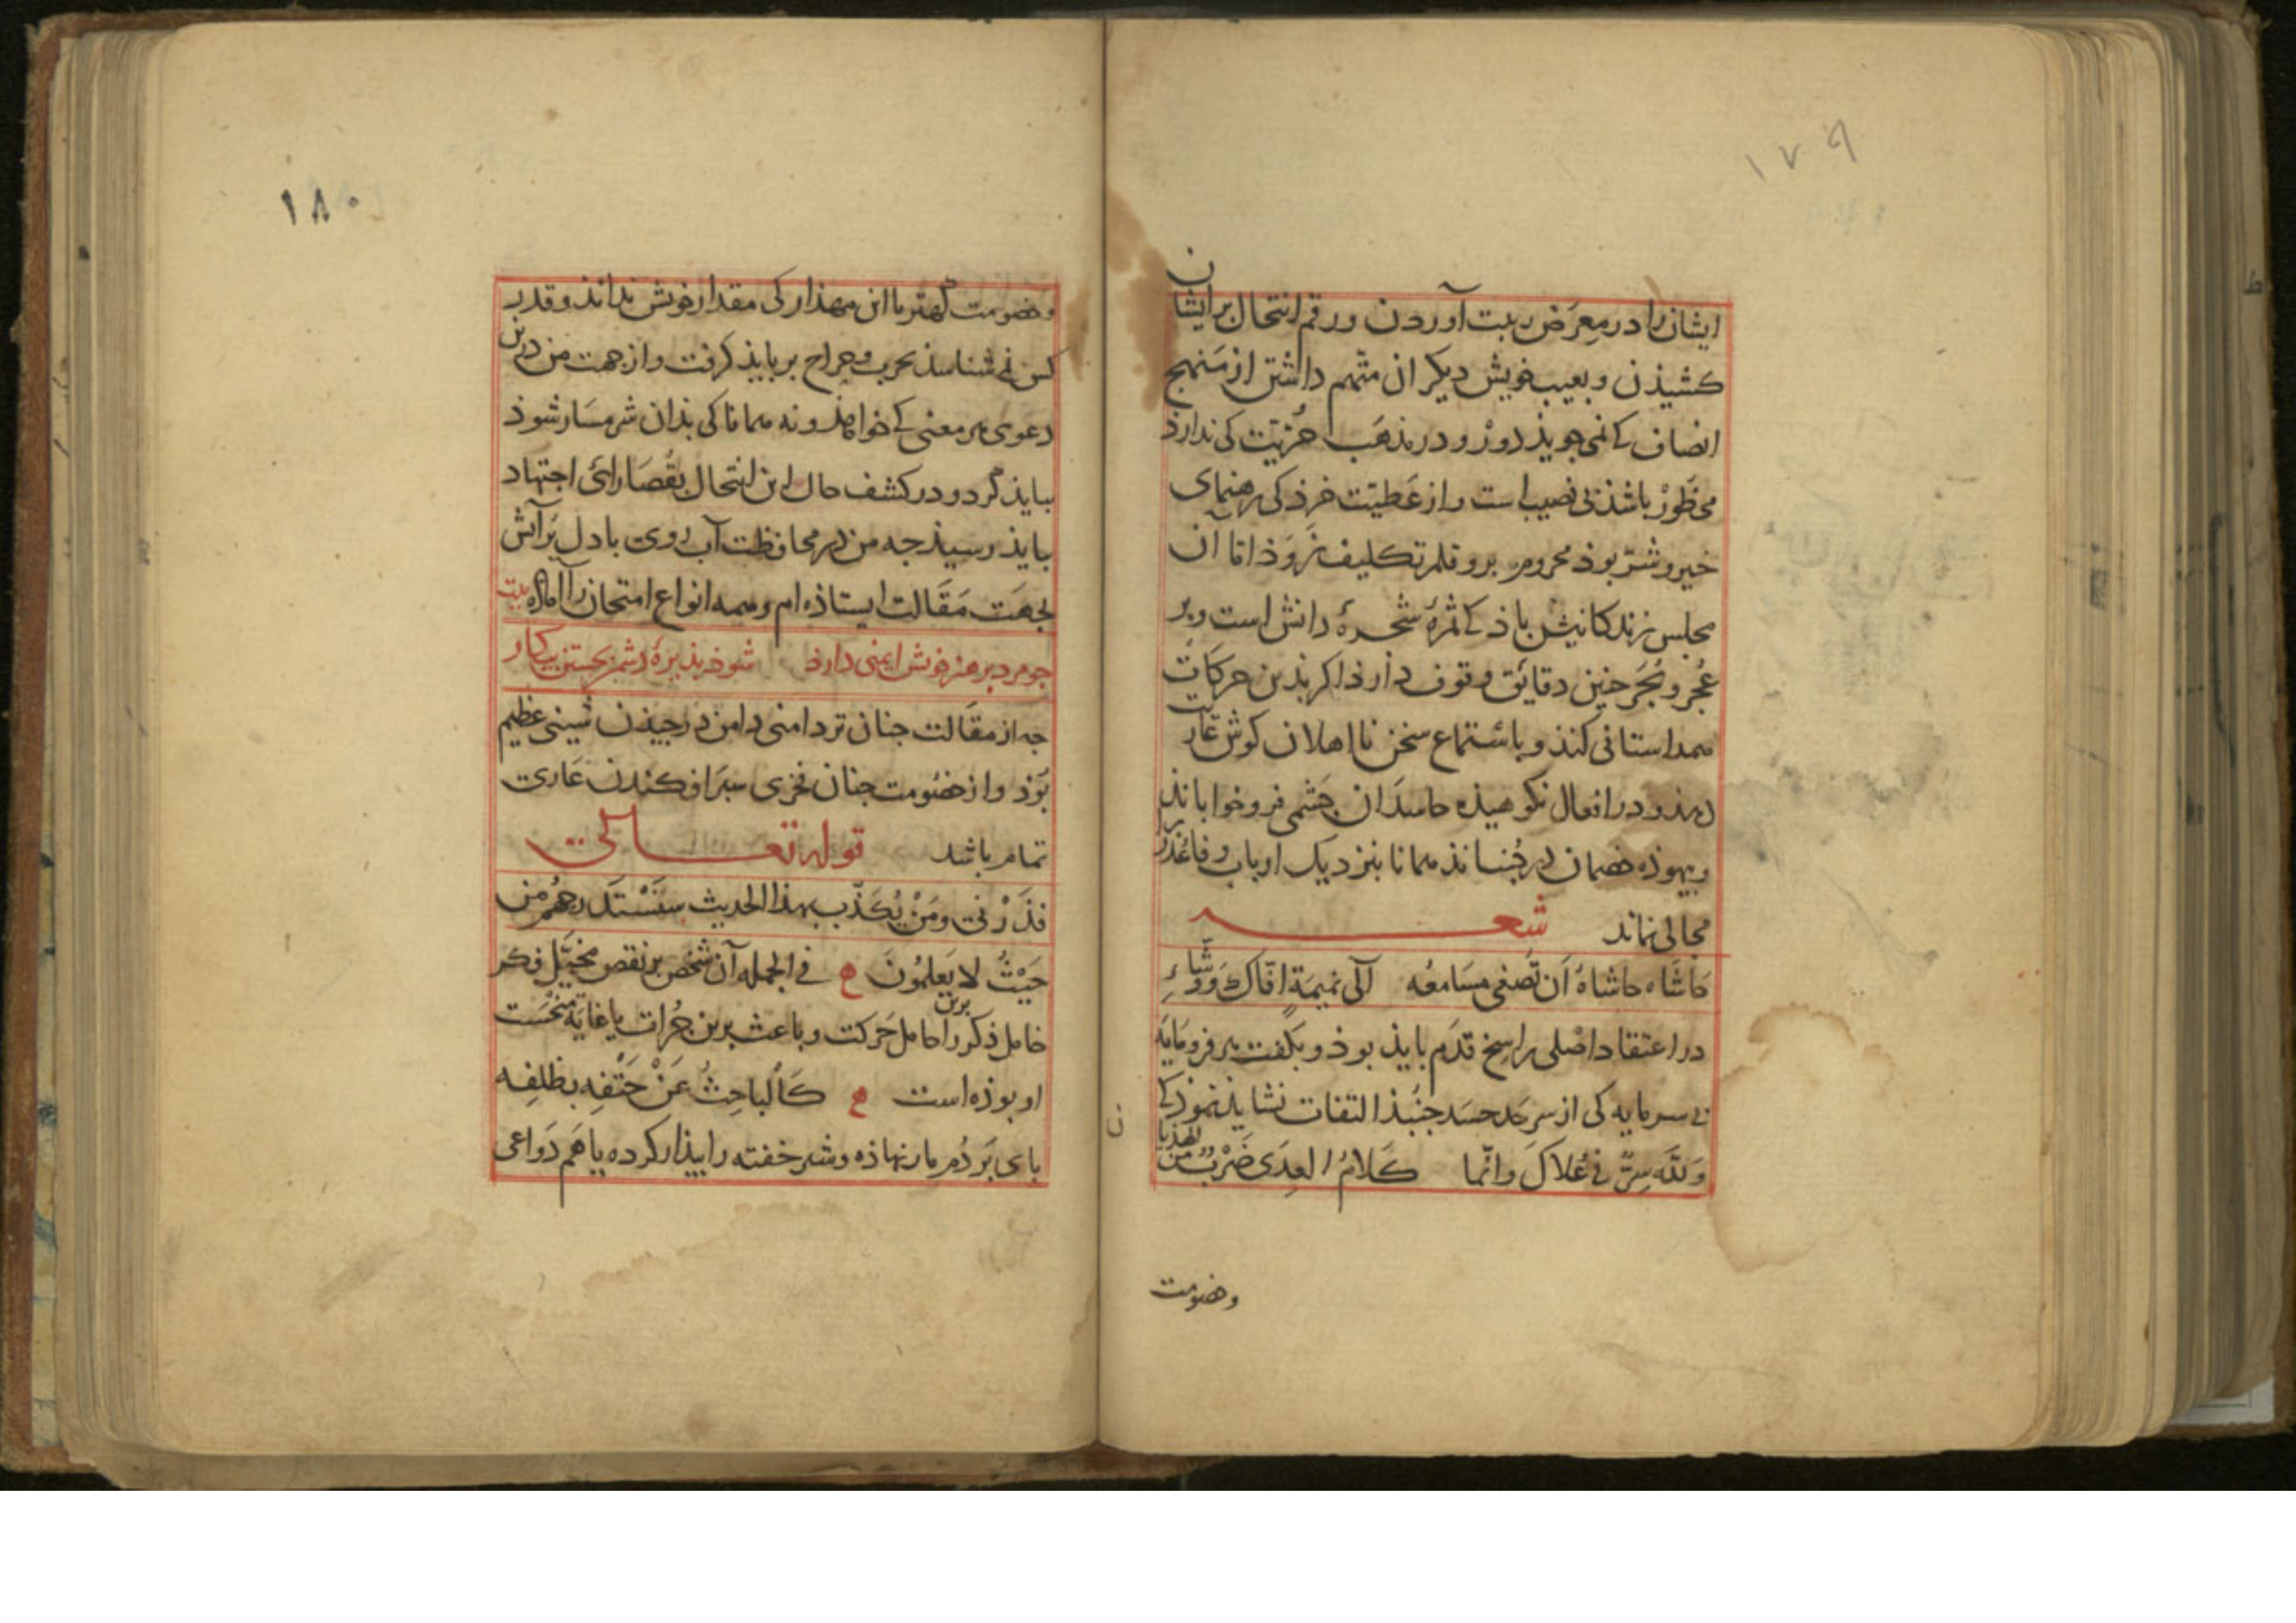 ١٧٩
ایشان را در معرض ریبت آوردن و رقم انتحال بر ایشان
کشیذن و بعیب خویش دیکران متهم داشتن از منهج
انصاف کی نمی جویذ دور و در مذهب حُریّت کی ندارذ
محظور باشذ بی نصیب است و از عَطیّت خرذ کی رهنمای
خیر و شرّ بوذ محروم برو قلم تکلیف نروذ اما آن
مجلس زندکانیش باذ کی ثمرهٔ شجرهٔ دانش است و بر
عُجَر و بُجَر جنین دقایق وقوف دارذ اکر بذین حرکات
همداستانی کنذ و باستماع سخن نااهلان کوش عاریت
دهذ و در افعال نکوهیذه حاسدان جشمی فرو خواباند
و بیهوذه خصمان در جُنبانذ همانا بنزدیک ارباب وفا عُذر
مجالی نماند شعـــر
حَاشَاه حاشاهُ اَن تُصْغی مسَامعُه الی نمیمَةِ افّاكٍ وَوَشّاءِ
در اعتقاد اصْلی راسِخ قدَم بایذ بوذ و بکفت هر فرومَایَه
بی سرمایه کی از سر حَد حسَد جنبذ التفات نشایذ نموذ کی
وَللّه سِرٌّ فی عُلاكَ وانّما كَلامُ العِدَی ضَرْبٌ مِنَ الهذیا
ن
وخصومت
١٨٠
وخصومت کهتر با این مهذار کی مقدار خوش نداند و قدر
کس نی شناسذ بحرب و جراح بر بایذ کرفت و از جهت من درین
دعوی هر معنی کی خواهذ و نه همانا کی بذان شرمسَار شوذ
ببایذ کرد و در کشف حال این انتحال بقُصَارای اجتهاد
بایذ رسیذ جه من در محافظت آب روی با دل پر آتش
بجهَت مَقَالت ایستاذه ام و همه انواع امتحان را آماده بیت
جو مرد بر هنر خوش ایمنی دارذ شوذ بذیرهٔ دشمن بجستن بیکار
جه از مقالت جنان تردامنی دامن در جیذن شینی عظیم
بوَذ و از خصُومت جنان فخری سبَر افکندن عَاری
تمام باشد قوله تعـــالی
فذَرْنی ومَنْ يُكَذّب بهذا الحديث سنَسْتَدرجهُم من
حَيْثُ لا يَعلمُونَ م فی الجمله آن شخص بر نقص مخیّل فکر
خامل ذکر را حامل برین حَرکت و باعث برین جُرات یا غایة مَنْحَسَت
او بوذه است م كَالباحِثُ عَنْ حَتْفِه بظلفِه
بای بَر دُم مار نهاذه و شیر خفته را بیذار کرده یا هَم دَواعی